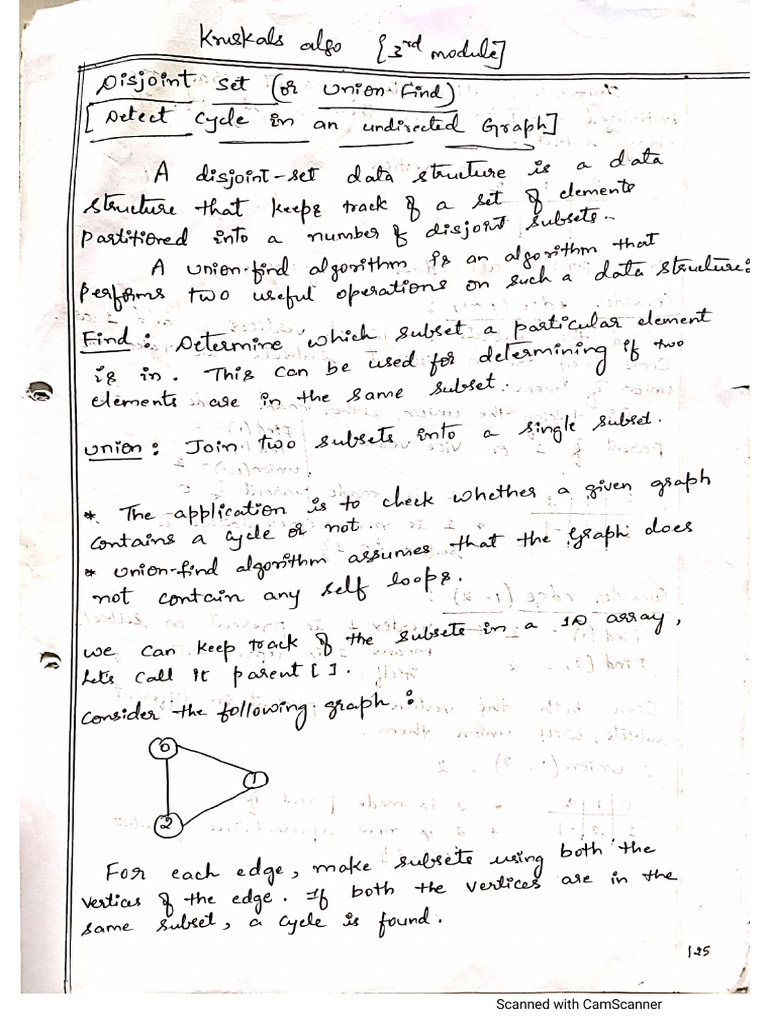 Kruskals algo [3rd module]
Disjoint set (or Union-Find)
[Detect Cycle in an undirected Graph]
A disjoint-set data structure is a data
structure that keeps track of a set of elements
partitioned into a number of disjoint subsets.
A union-find algorithm is an algorithm that
performs two useful operations on such a data structure:
Find: Determine which subset a particular element
is in. This can be used for determining if two
elements are in the same subset.
union: Join two subsets into a single subset.
* The application is to check whether a given graph
contains a cycle or not.
* union-find algorithm assumes that the Graph does
not contain any self loops.
we can keep track of the subsets in a 1D array,
Lets call it parent[].
consider the following graph:
0
1
2
For each edge, make subsets using both the
vertices of the edge. If both the vertices are in the
same subset, a cycle is found.
125
Scanned with CamScanner